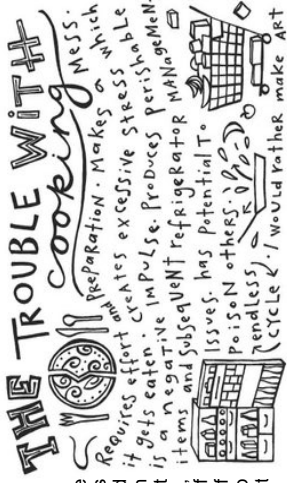 THE TROUBLE WITH
cooking
Requires effort and PREPARATION. MAKES A MESS.
it gets eaten. CREATES EXCESSIVE STRESS which
is a negative IMPULSE. PRODUCES PERISHABLE
items and subsequent refrigerator MANAGEMEN
issues. has potential to
Poison others.
endless
cycle. I would rather make ART